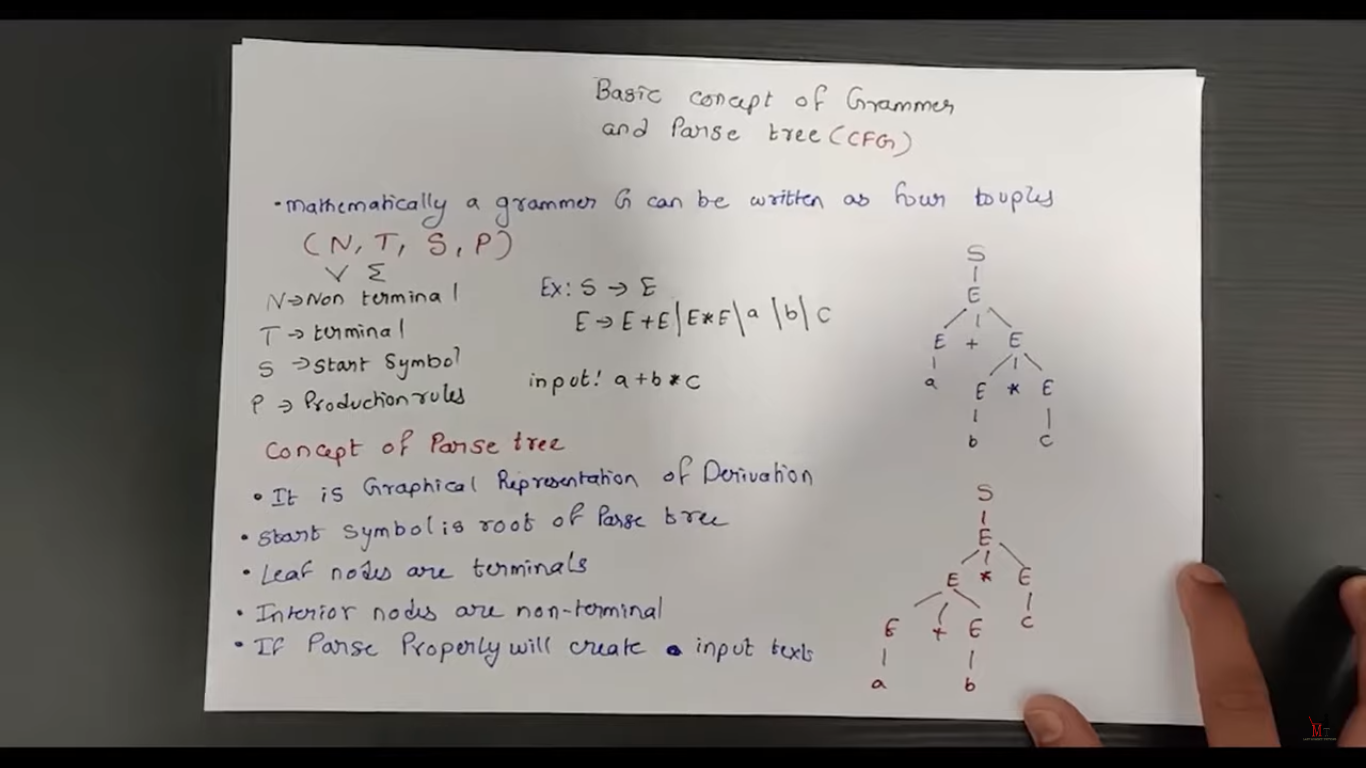 Basic concept of Grammer
and Parse tree (CFG)
• mathematically a grammer G can be written as four touples
(N, T, S, P)
V Σ
N → Non terminal
T → terminal
S → Start Symbol
P → Production rules
Ex: S → E
E → E+E | E*E | a | b | c
input: a+b*c
Concept of Parse tree
• It is Graphical Representation of Derivation
• Start symbol is root of Parse tree
• Leaf nodes are terminals
• Interior nodes are non-terminal
• If Parse Properly will create input texts
S
E
E + E
a E * E
b c
S
E
E * E
E + E c
a b